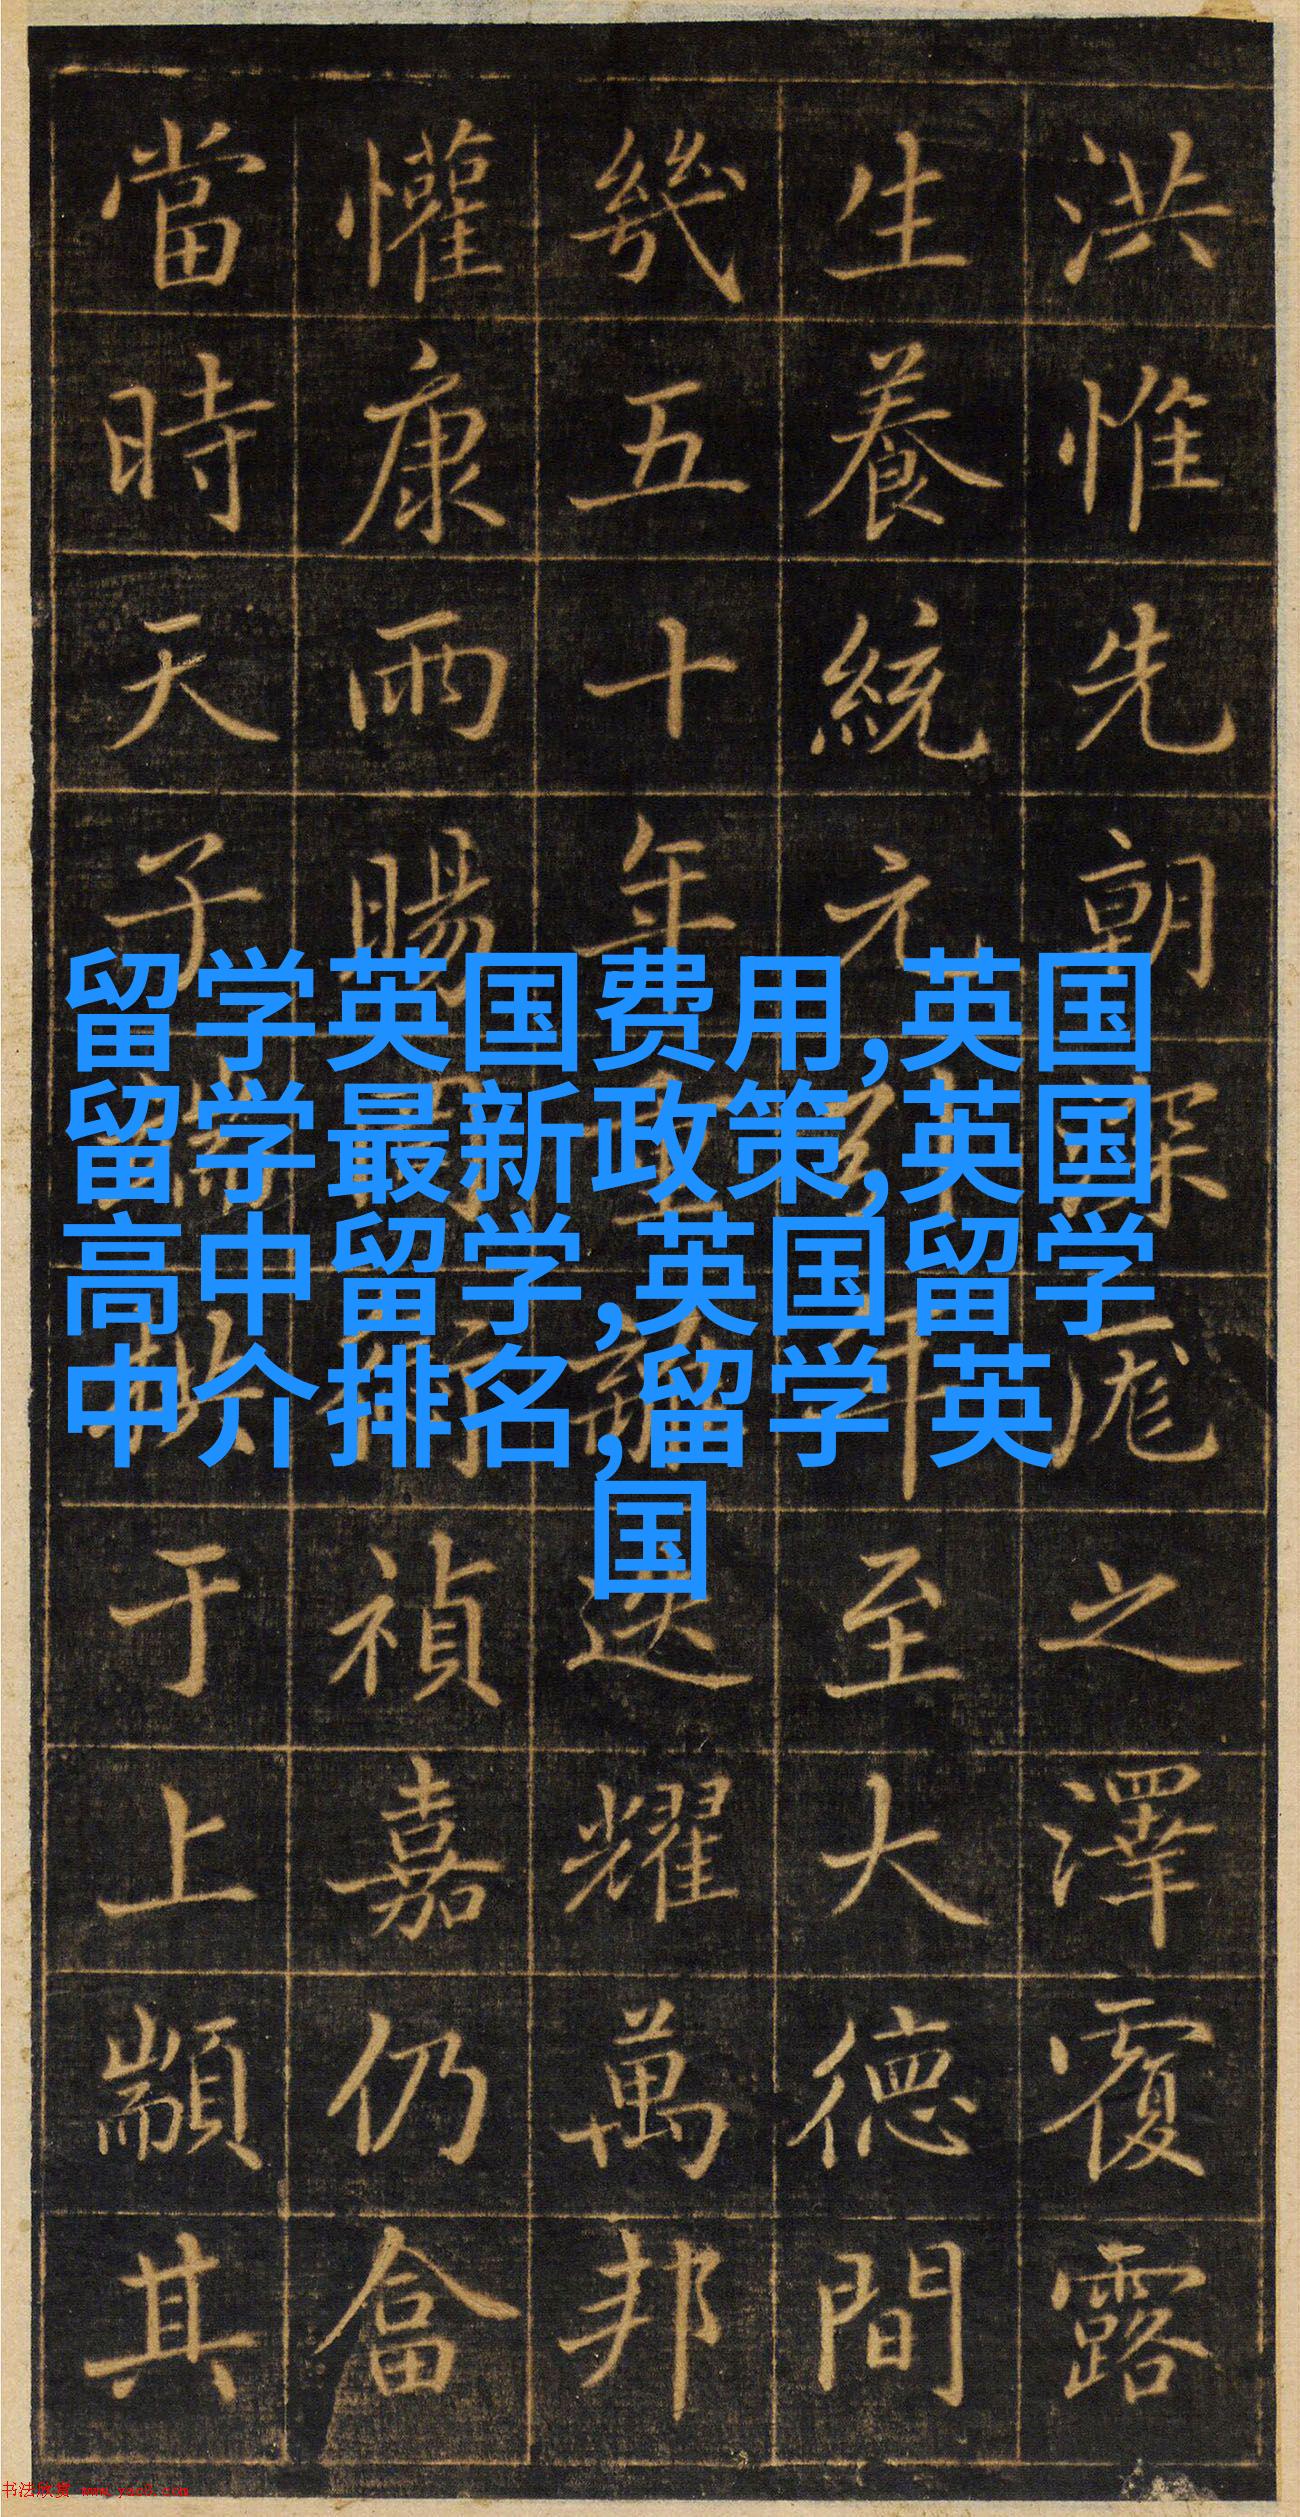 洪惟先朝深厖之澤覆露
生養統元至大德間
幾五十年重迭耀萬邦
懽康雨暘禎嘉仍畬
當時天子端拱于上顓其
留学英国费用,英国
留学最新政策,英国
高中留学,英国留学
中介排名,留学 英
国
书法欣赏 www.yac8.com